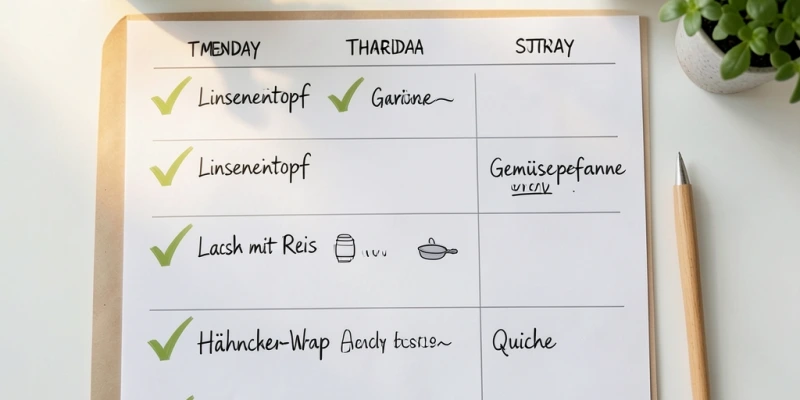 TMENDAY THARIDAA SJTRAY
Linsenentopf Gariüne
Linsenentopf Gemüsepefanne
Lacsh mit Reis
Hähncker-Wrap Quiche